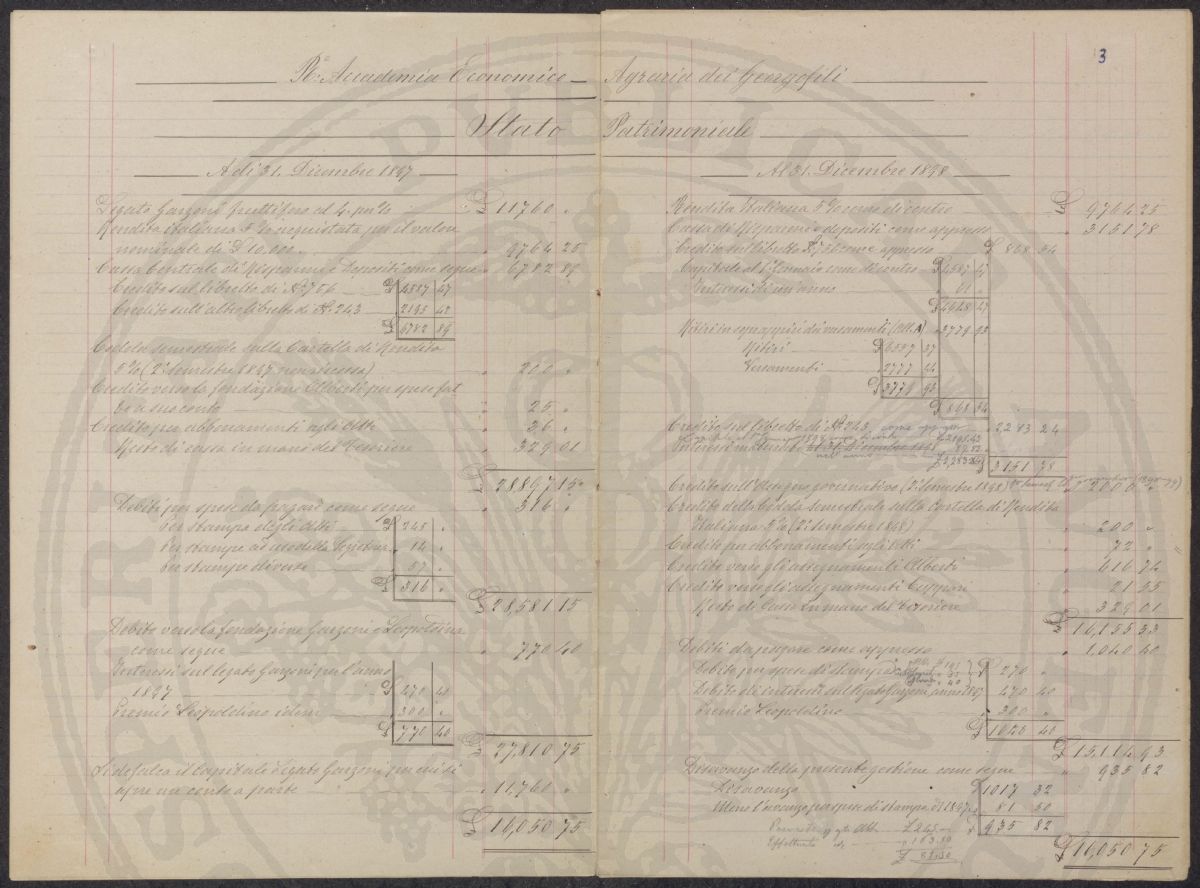 3
Rª Accademia Economico Agraria dei Georgofili
Stato Patrimoniale
A dì 31. Dicembre 1897
Legato Garzoni fruttifero al 4. p% £ 11760 "
Rendita Italiana 5% acquistata per il valore
nominale di £ 10.000 " 9764 25
Cassa Centrale di Risparmi e Depositi come segue " 6782 89
Credito sul libretto di N. 756 £ 4587 47
Credito sull'altro libretto di N. 243 " 2195 42
£ 6782 89
Cedola semestrale sulla Cartella di Rendita
5% (2° semestre 1897 non riscossa) " 200 "
Credito verso la fondazione Alberti per spese fat
te a suo conto " 25 "
Credito per abbonamenti agli Atti " 36 "
Resto di cassa in mano del Tesoriere " 329 01
£ 28897 15
Debiti per spese da pagare come segue " 316 "
Per stampa degli Atti £ 245 "
Per stampe ad uso della Segreteria " 14 "
Per stampe diverse " 57 "
£ 316 "
£ 28,581 15
Debito verso la fondazione Garzoni e Leopoldina
come segue " 770 40
Interessi sul legato Garzoni per l'anno
1897 £ 470 40
Premio Leopoldino idem " 300 "
£ 770 40
£ 27,810 75
Si defalca il Capitale Legato Garzoni per cui si
apre un conto a parte " 11,760 "
£ 16,050 75
Al 31. Dicembre 1898
Rendita Italiana 5% come di contro £ 9764 25
Cassa di Risparmi e depositi come appresso " 3151 78
Credito sul libretto N. 756 come appresso £ 868 54
Capitale al 1° Gennaio come di contro £ 4587 47
Interessi di un anno
£ 4648 47
Ritiri in sopra più di versamenti (All. A) " 3779 93
Ritiri £ 6557 37
Versamenti " 2777 44
£ 3779 93
£ 868 54
Credito sul libretto di N. 243 " 2283 24
£ 2195 42
£ 2,283 24
£ 3151 78
Credito sull'Assegno governativo (2° semestre 1898) " 2000 "
Credito della Cedola semestrale sulla Cartella di Rendita
Italiana 5% (2° semestre 1898) " 200 "
Credito per abbonamenti agli Atti " 72 "
Credito verso gli assegnamenti Alberti " 616 74
Credito verso gli assegnamenti Cuppari " 21 55
Resto di Cassa in mano del Tesoriere " 329 01
£ 16,155 33
Debiti da pagare come appresso " 1,040 40
Debito per spese di stampa £ 270 "
Debito di interessi sul legato Garzoni, anno 1897 " 470 40
Premio Leopoldino " 300 "
£ 1040 40
£ 15,114 93
Disavanzo della presente gestione come segue " 935 82
Disavanzo £ 1017 32
Meno l'avanzo per spese di stampa del 1897 " 81 50
£ 935 82
£ 245
" 163.50
£ 81.50
£ 16,050 75